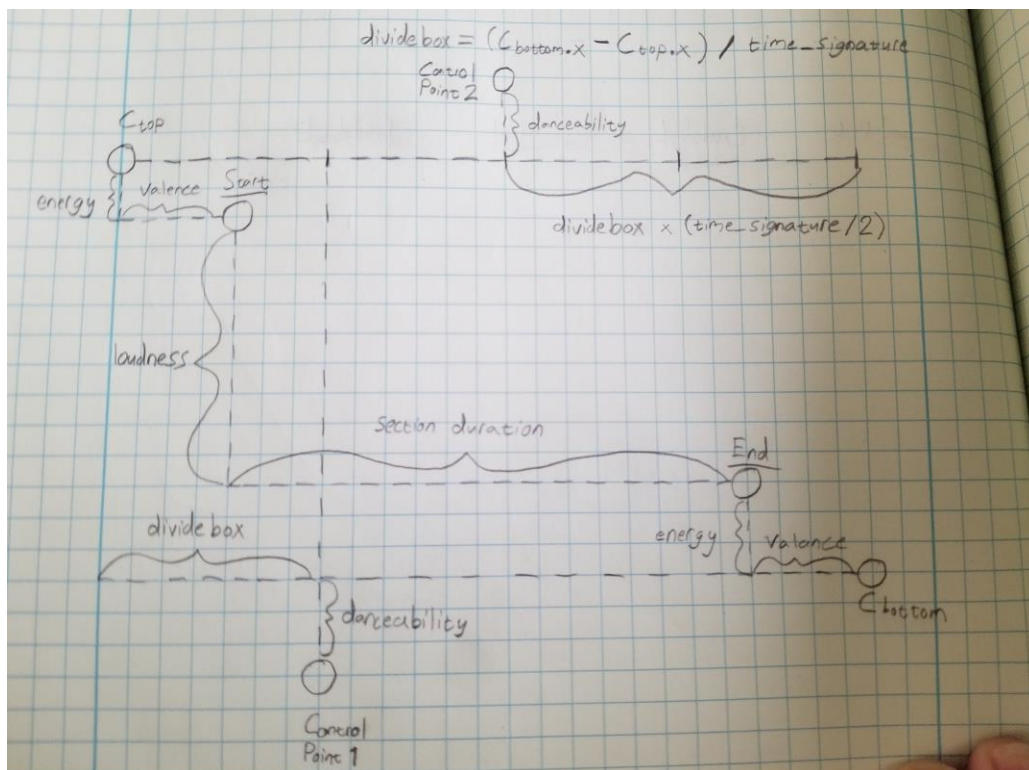 dividebox = (Cbottom.x - Ctop.x) / time_signature
Control
Point 2
danceability
Ctop
energy
valence
Start
dividebox x (time_signature/2)
loudness
section duration
End
divide box
energy
valance
Cbottom
danceability
Control
Point 1